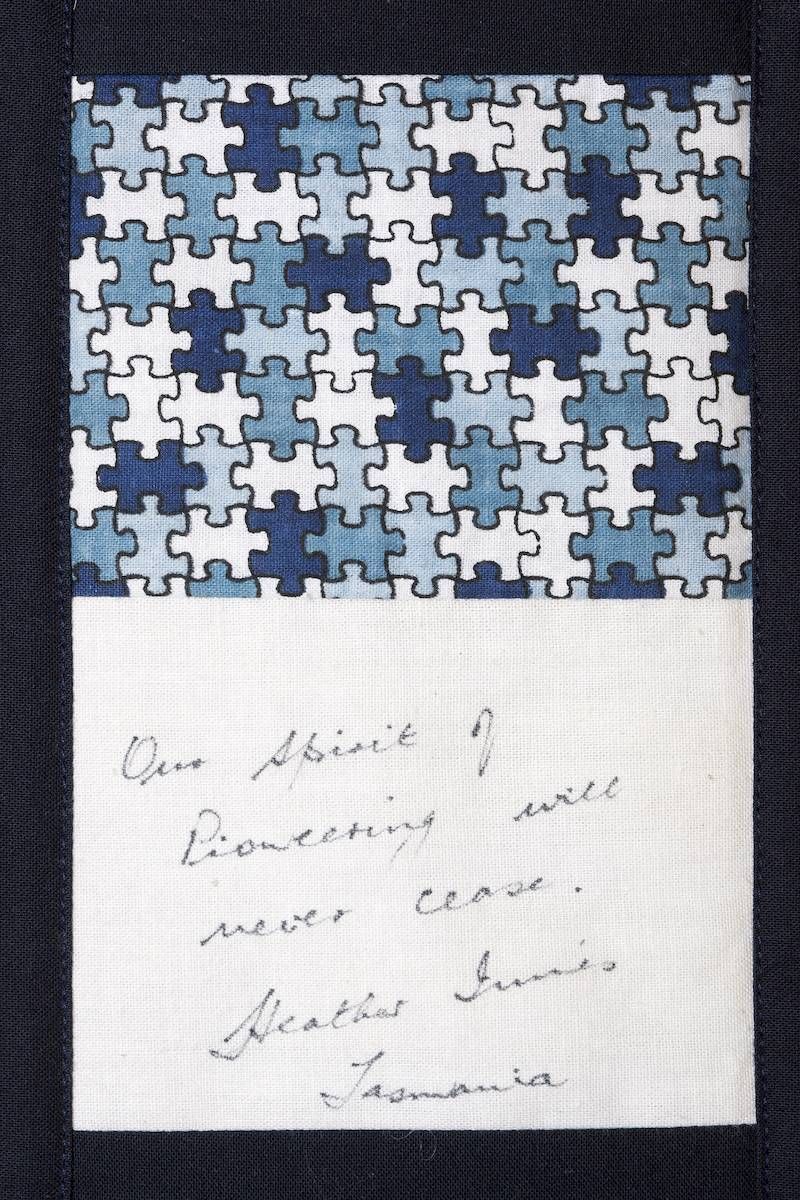 Our spirit of
Pioneering will
never cease.
Heather Innes
Tasmania